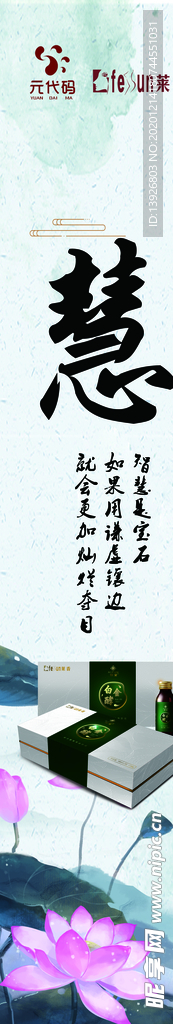 元代码
YUAN DAI MA
Lifessun莱
慧
智慧是宝石
如果用谦虚镶边
就会更加灿烂夺目
白金
ID:13926803 NO:20201214
昵享网 www.nipic.cn